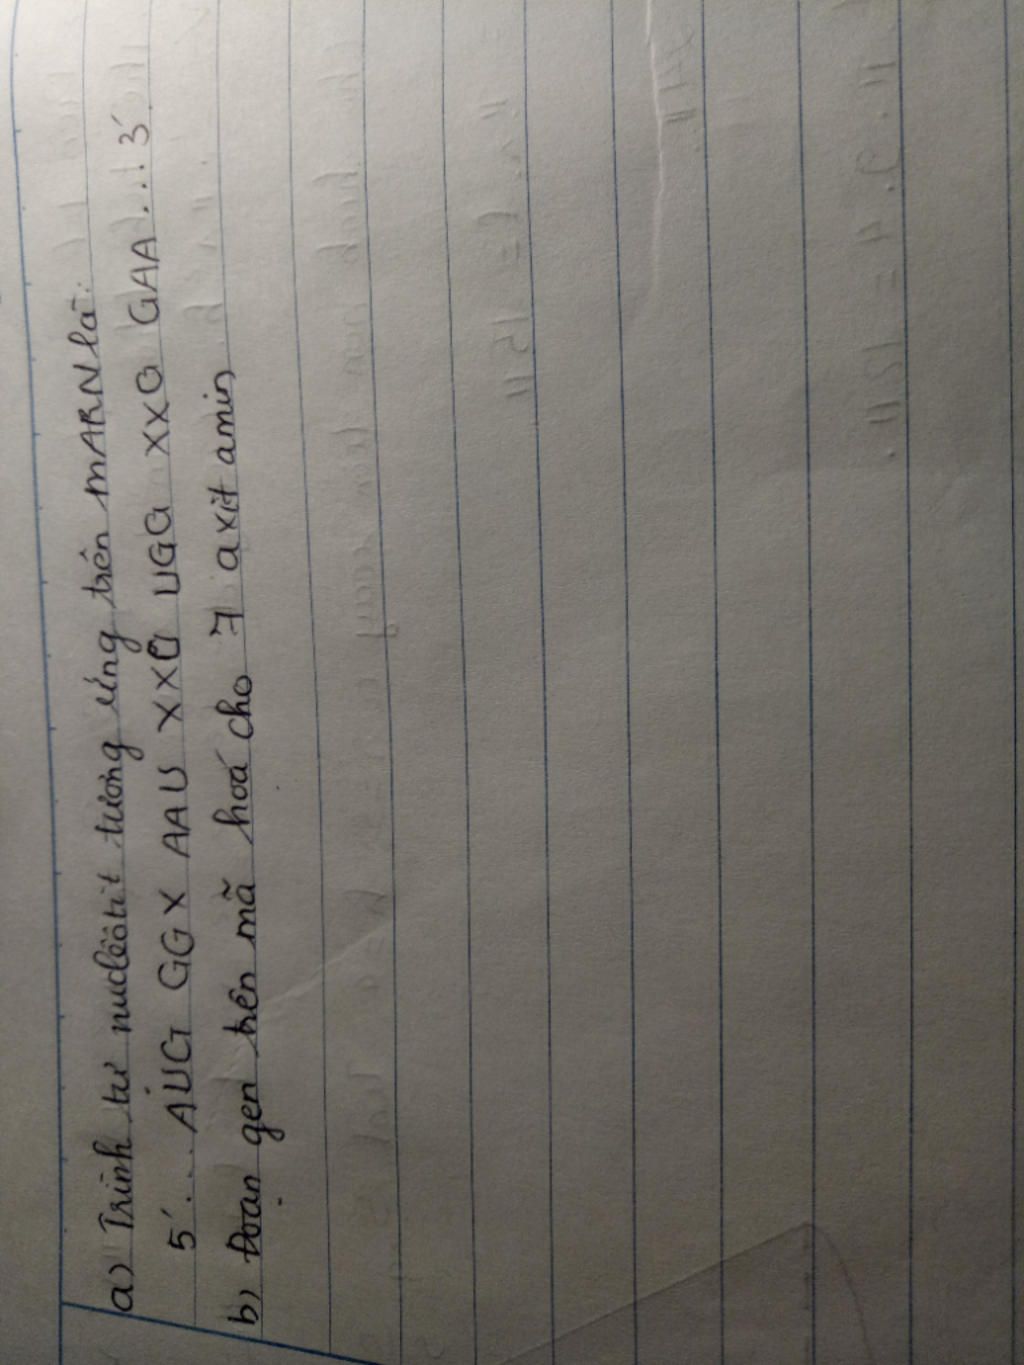 a) Trình tự nuclêôtit tương ứng trên mARN là:
5'... AUG GGX AAU XXG UGG XXG GAA...3'
b) Đoạn gen trên mã hoá cho 7 axit amin